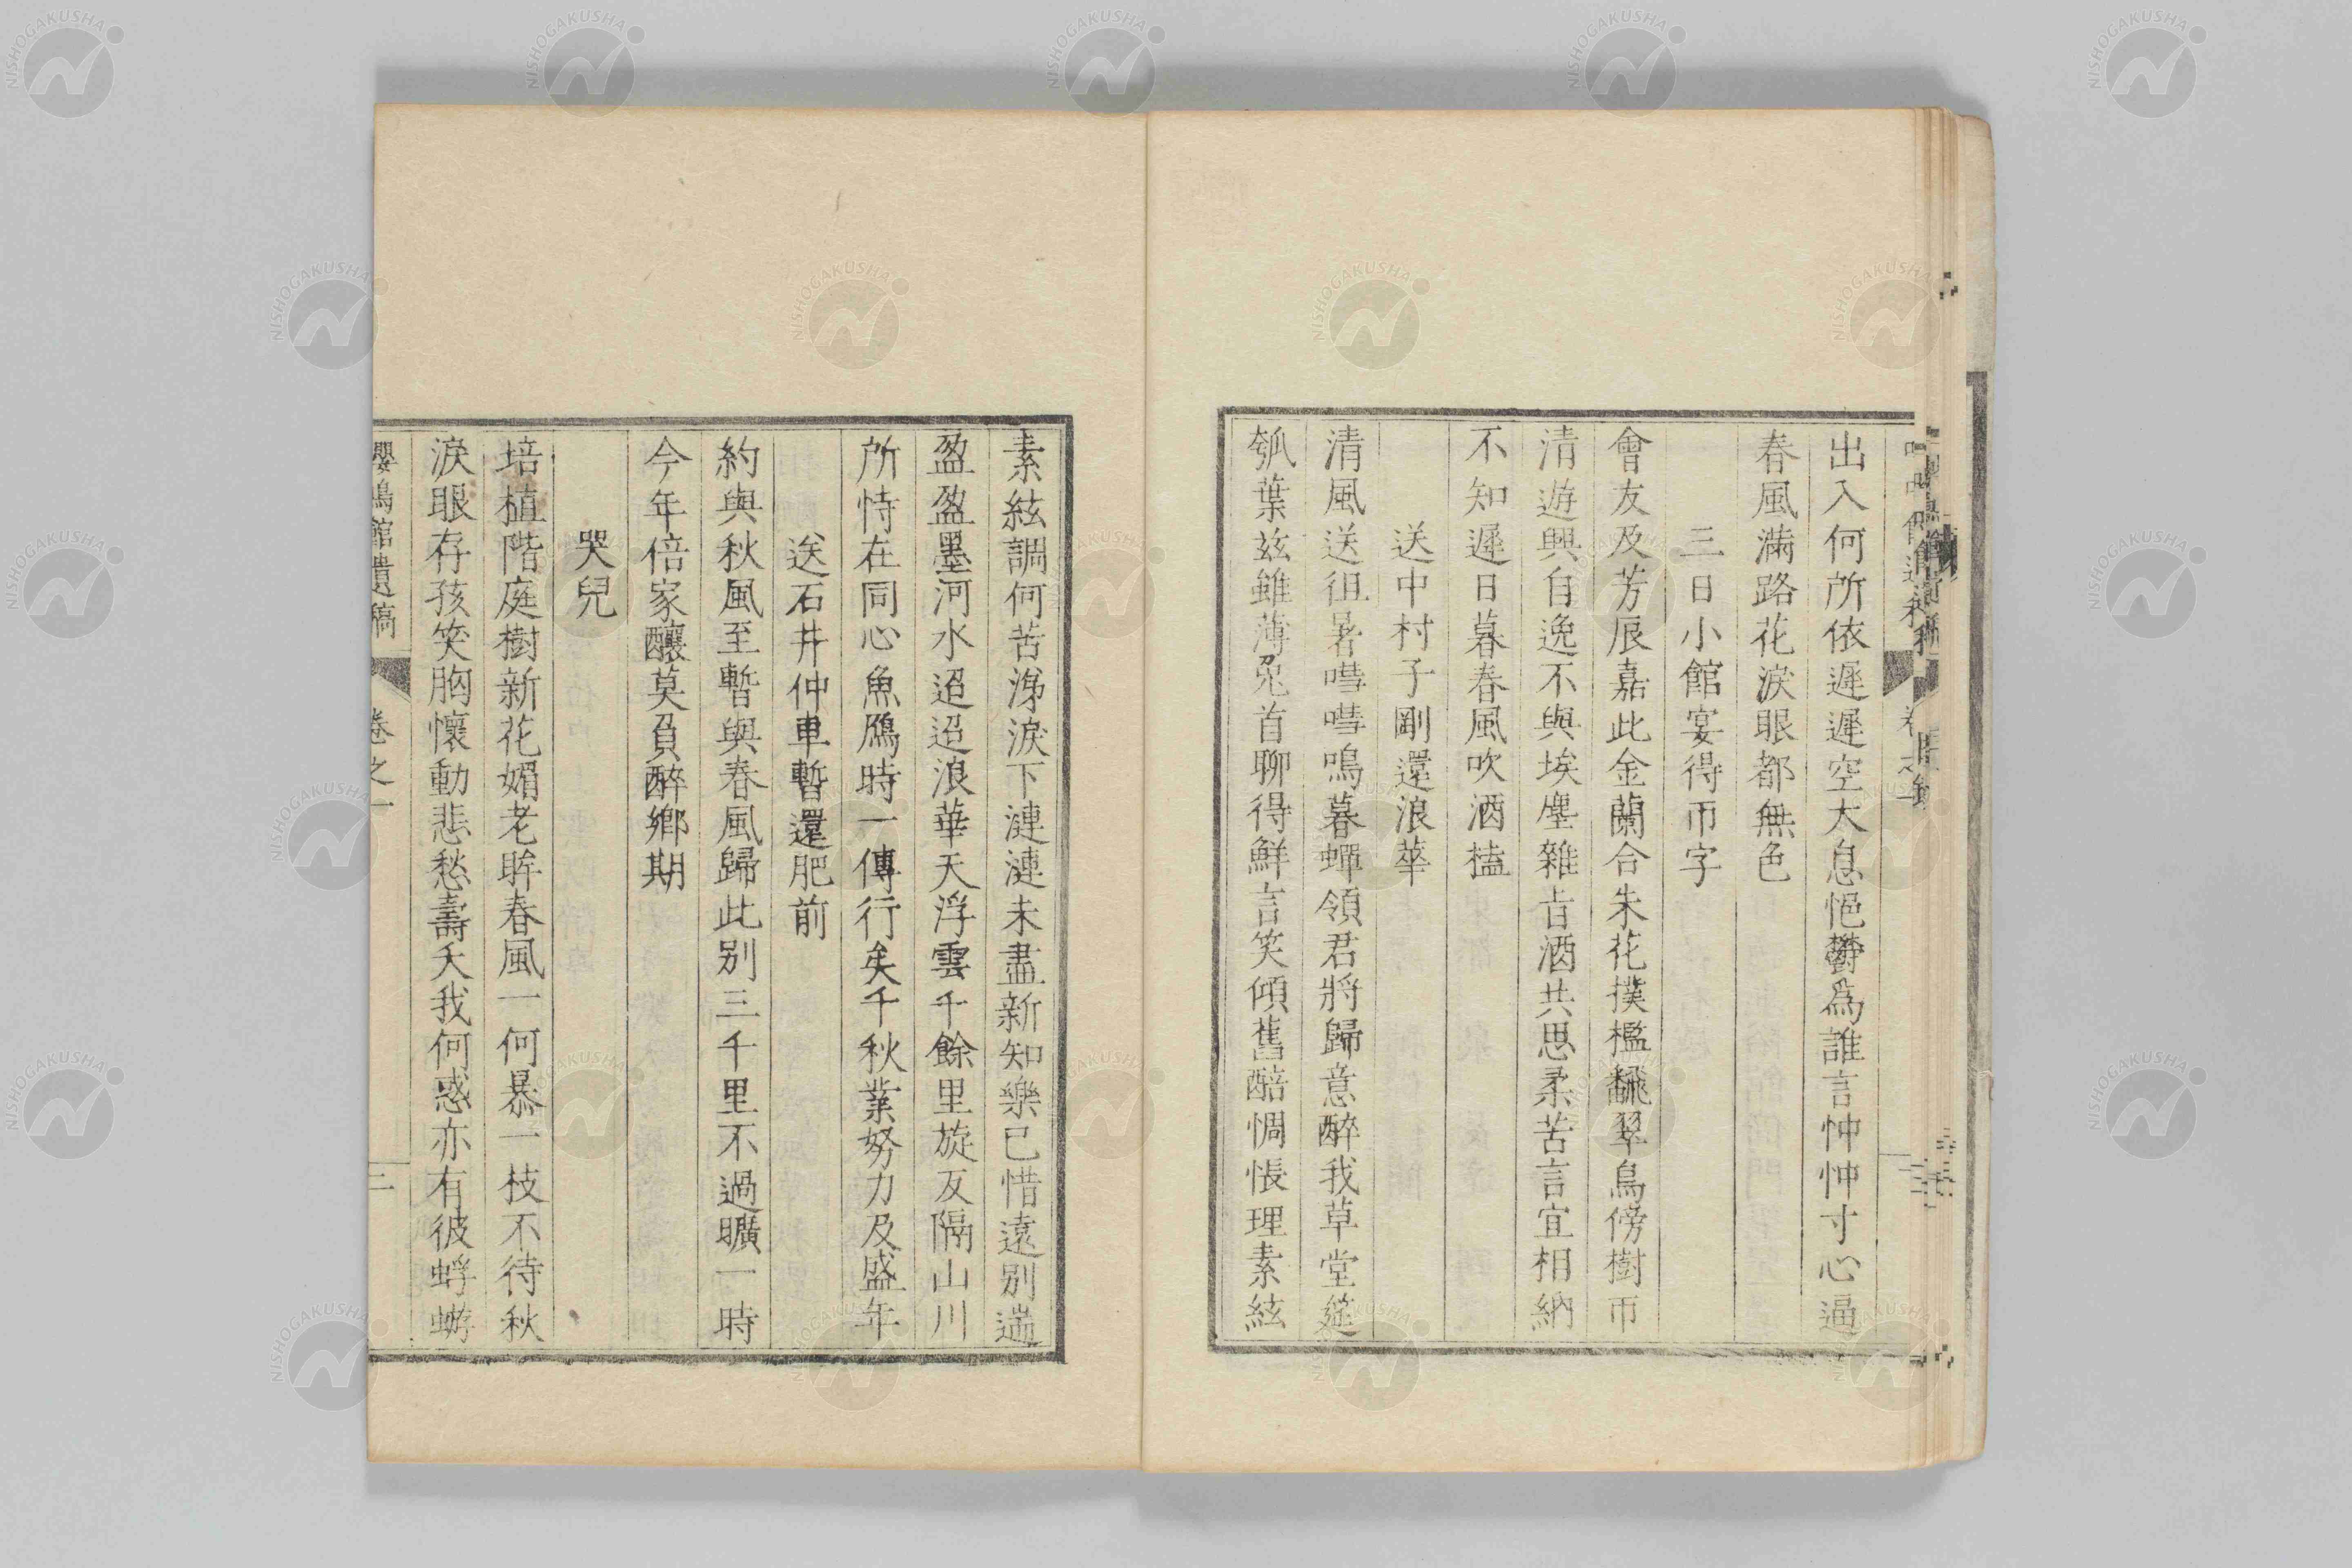 出入何所依遲遲空大息悒鬱為誰言忡忡寸心逼
春風滿路花淚眼都無色
三日小館宴得帀字
會友及芳辰嘉此金蘭合朱花撲檻飜翠鳥傍樹帀
清遊興自逸不與埃塵雜旨酒共思柔苦言宜相納
不知遲日暮春風吹酒榼
送中村子剛還浪華
清風送徂暑嘒嘒鳴暮蟬領君將歸意醉我草堂筵
瓠葉茲雖薄兔首聊得鮮言笑傾舊醅惆悵理素絃
素絃調何苦涕淚下漣漣未盡新知樂已惜遠別遄
盈盈墨河水迢迢浪華天浮雲千餘里旋反隔山川
所恃在同心魚鴈時一傳行矣千秋業努力及盛年
送石井仲車暫還肥前
約與秋風至暫與春風歸此別三千里不過曠一時
今年倍家釀莫負醉鄉期
哭兒
培植階庭樹新花媚老眸春風一何暴一枝不待秋
淚眼存孩笑胸懷動悲愁壽夭我何惑亦有彼蜉蝣
嚶鳴館遺稿 卷之一 三
NISHOGAKUSHA